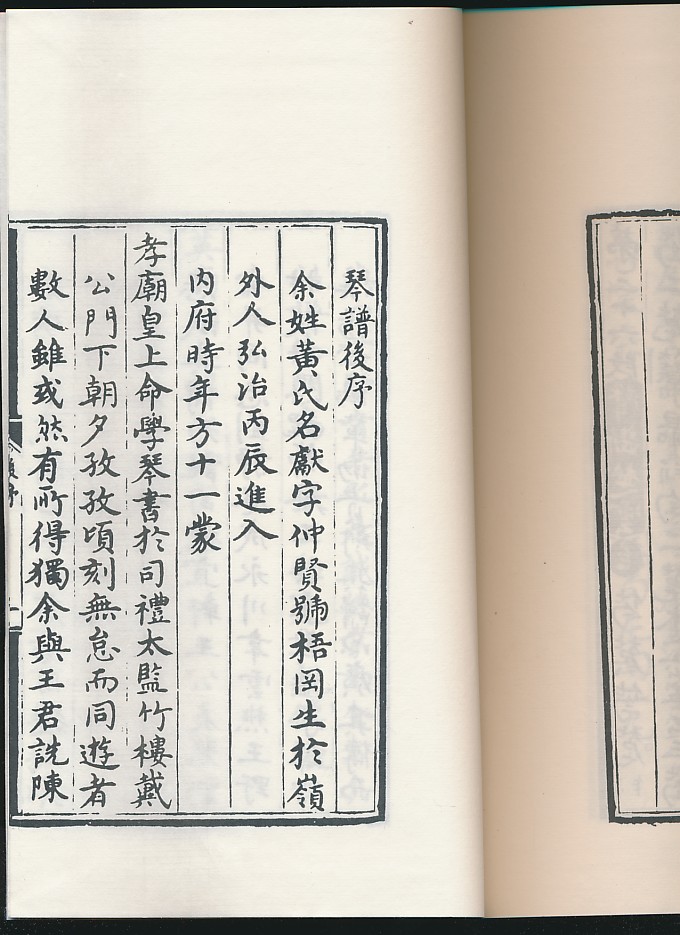 琴譜後序
余姓黃氏名獻字仲賢號梧岡生於嶺
外人弘治丙辰進入
內府時年方十一蒙
孝廟皇上命學琴書於司禮太監竹樓戴
公門下朝夕孜孜頃刻無怠而同遊者
數人雖或然有所得獨余與王君詵陳